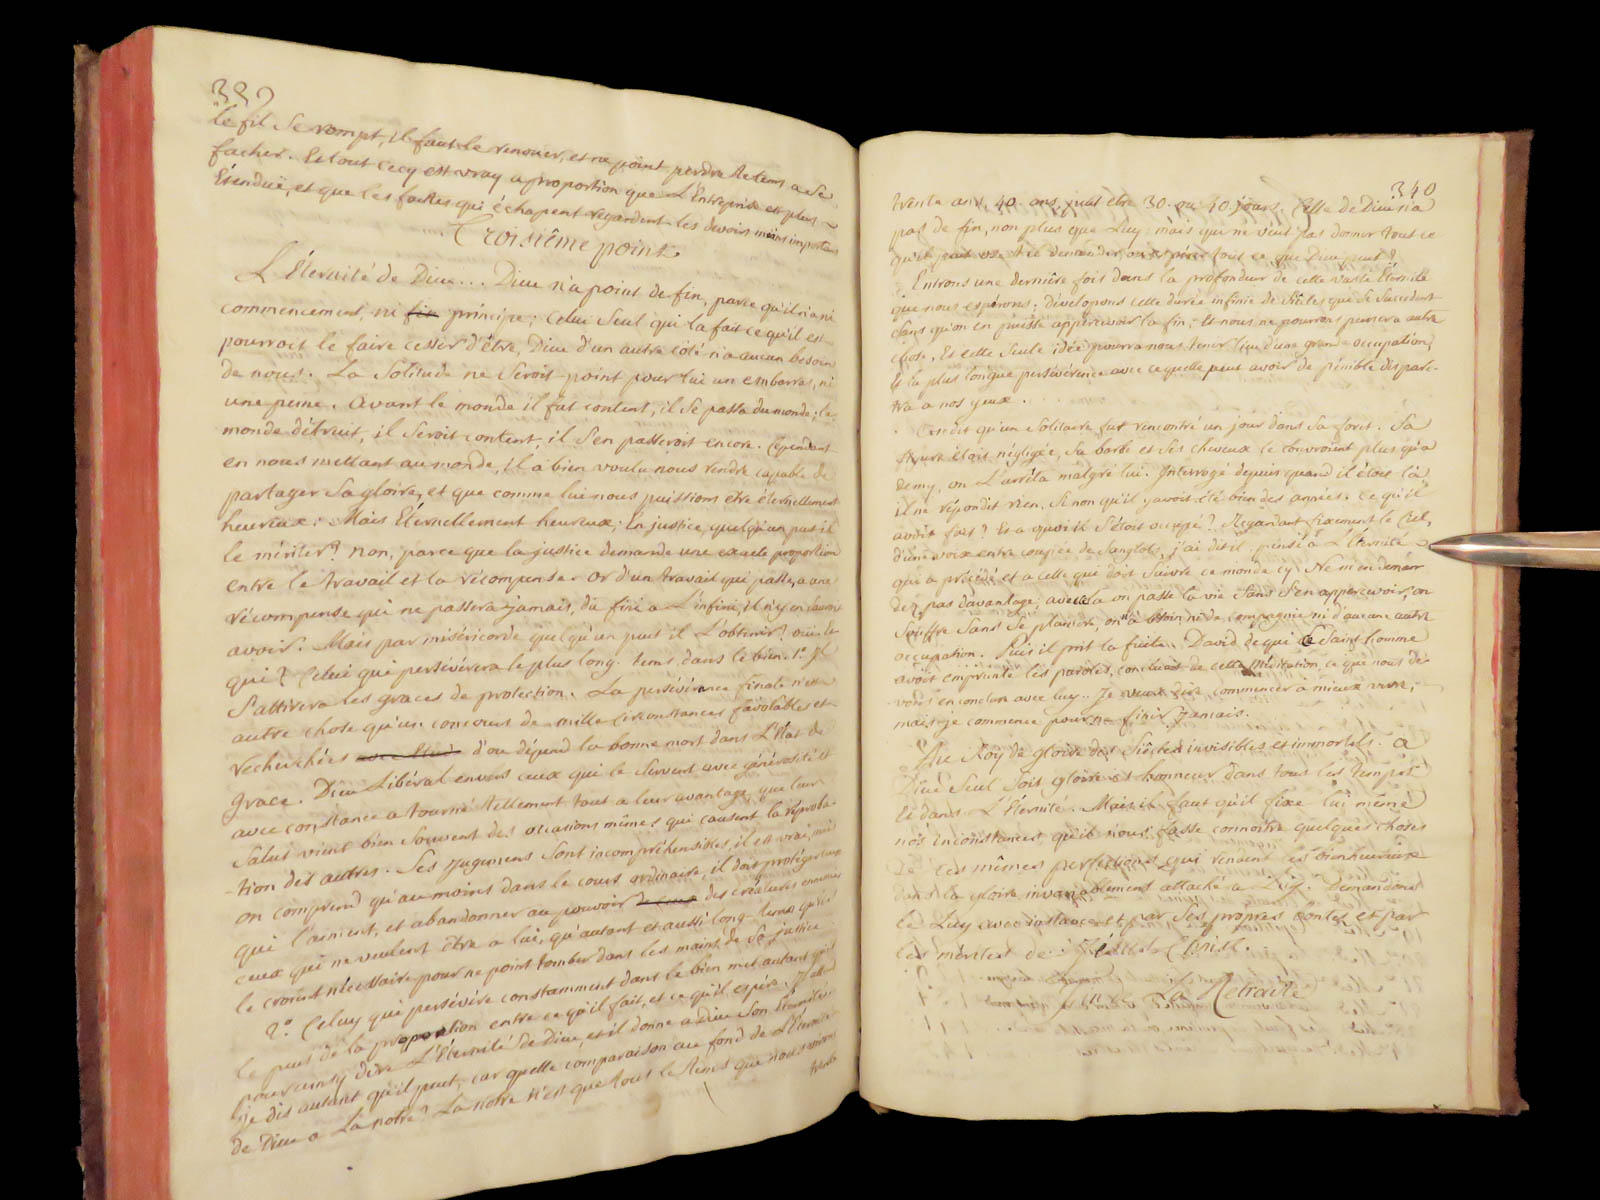 339
le fil se rompt, il faut le renouer, et ne point perdre le tems a se
facher. Et tout cecy est vray a proportion que L'Entreprise est plus
Etenduë, et que les fautes qui échapent regardent les devoirs moins importans
Troisiême point.
L'Éternité de Dieu... Dieu n'a point de fin, parce qu'il n'a ni
commencement, ni fin principe; Celui Seul qui l'a fait ce qu'il est
pourroit le faire cesser d'être, Dieu d'un autre côté n'a aucun besoin
de nous. La Solitude ne Seroit point pour lui un embarras, ni
une peine. Avant le monde il fut content, il Se passa du monde; le
monde détruit, il Seroit content, il S'en passeroit encore. Cependant
en nous mettant au monde, il a bien voulu nous rendre capable de
partager Sa gloire, et que comme lui nous puissions etre éternellement
heureux: Mais Eternellement heureux; En justice, quelqu'un peut il
le mériter? non, parce que la justice demande une exacte proportion
entre le travail et la récompense. or d'un travail qui passe, a une
récompense qui ne passera jamais, du fini a L'infini, il n'y en sauroit
avoir. Mais par miséricorde quelqu'un peut il L'obtenir? oui. Et
qui? Celui qui persévérera le plus long-tems dans le bien. 1.° Il
S'attirera les graces de protection. La persévérance finale n'est
autre chose qu'un concours de mille circonstances favorables et
recherchées d'ou dépend la bonne mort dans L'État de
grace. Dieu Libéral envers ceux qui le Servent avec générosité et
avec constance a tourné tellement tout a leur avantage, que leur
Salut vient bien Souvent des occasions mêmes qui causent la réproba-
-tion des autres. Ses jugemens Sont incompréhensibles, il est vrai, mais
on comprend qu'au moins dans le cours ordinaire, il doit protéger ceux
qui l'aiment, et abandonner au pouvoir des créatures ennemies
ceux qui ne veulent être a lui, qu'autant et aussi long-tems qu'ils
le croient nécessaire pour ne point tomber dans les mains de Sa justice
2.° Celuy qui persévère constamment dans le bien met autant qu'il
le peut de la proportion entre ce qu'il fait, et ce qu'il espère. Il attend
pour ainsy dire L'Éternité de Dieu, et il donne a Dieu Son Eternité.
je dis autant qu'il peut, car quelle comparaison au fond de L'Éternité
de Dieu a La notre? La notre n'est que tout le tems que nous vivons
trente
340
trente ans, 40 ans, peut etre 30. ou 40. jours. Celle de Dieu n'a
pas de fin, non plus que Luy; mais qui ne veut pas donner tout ce
qu'il peut ose t-il demander, ou espérer tout ce que Dieu peut?
Entrons une derniêre fois dans la profondeur de cette vaste Éternité
que nous espérons. Dévelopons cette durée infinie de Siêcles qui se Succedent
Sans qu'on en puisse appercevoir la fin; Et nous ne pourrons penser a autre
chose, Et cette Seule idée pourra nous tenir lieu d'une grande occupation,
Et la plus longue persévérence avec ce qu'elle peut avoir de pénible disparoi-
tra a nos yeux.
On dit qu'un Solitaire fut rencontré un jour dans Sa forêt. Sa
figure était négligée, Sa barbe et Ses cheveux le couvroient plus qu'a
demy, on L'arrêta malgré lui. Interrogé depuis quand il étoit là,
il ne répondit rien, Si non qu'il y avoit été bien des années. Ce qu'il
avoit fait? Et a quoi il S'étoit occupé? Regardant fixement le Ciel,
d'une voix entre coupée de Sanglots, j'ai dit il pensé a L'Eternité
qui a précédé et a celle qui doit Suivre ce monde cy. Ne m'en deman-
dez pas davantage; avec cela on passe la vie Sans S'en appercevoir, on
Souffre Sans Se plaindre, on n'a besoin ni de compagnie ni d'aucune autre
occupation. Puis il prit la fuite. David de qui ce Saint homme
avoit emprunté les paroles, conclut de cette Méditation, ce que nous de-
vons en conclure avec luy.. Je veux dire commencer à mieux vivre;
mais je commence pour ne finir jamais.
Au Roy de gloire des Siêcles invisibles et immortels. a
Dieu Seul Soit gloire et honneur dans tous les temps
Et dans L'Éternité. Mais il faut qu'il fixe lui même
nos inconstances, qu'il nous fasse connoître quelques choses
de ces mêmes perfections, qui rendent les bienheureux
dans la gloire invariablement attaché a Luy. Demandons
le Luy avec instance et par Ses propres bontés et par
les mérites de Jésus Christ.
Fin de la Retraite